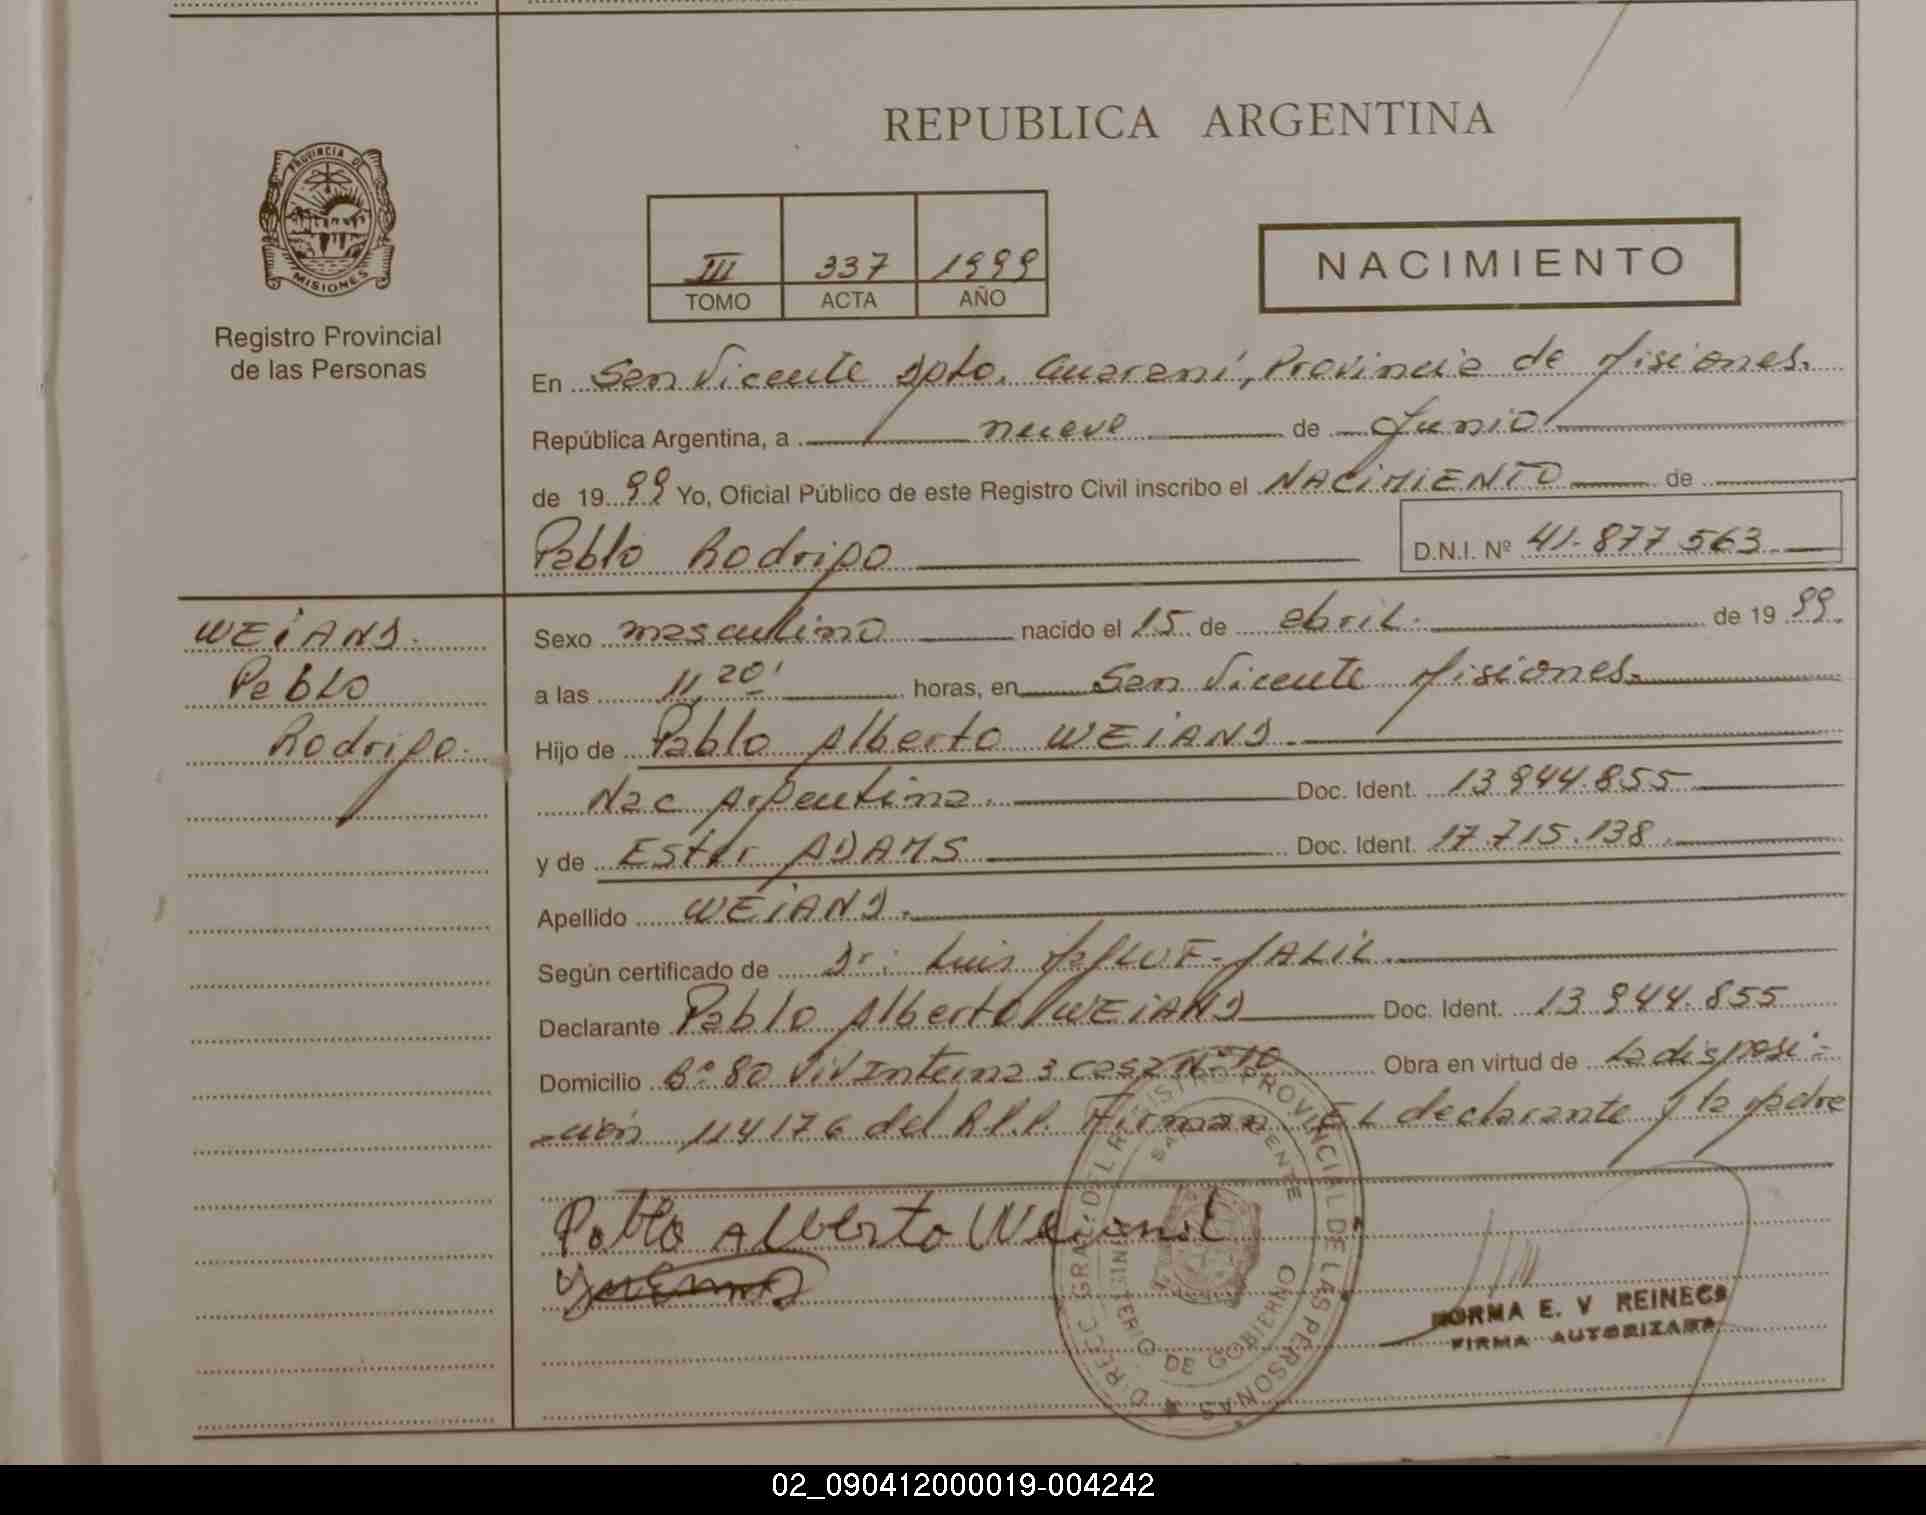 REPUBLICA ARGENTINA
PROVINCIA DE
MISIONES
Registro Provincial
de las Personas
III 337 1999
TOMO ACTA AÑO
NACIMIENTO
En San Vicente Dpto. Guaraní, Provincia de Misiones.
República Argentina, a nueve de Junio
de 1999 Yo, Oficial Público de este Registro Civil inscribo el NACIMIENTO de
Pablo Rodrigo D.N.I. Nº 41.877 563
WEIAND.
Pablo
Rodrigo.
Sexo masculino nacido el 15 de abril. de 1999.
a las 11,20' horas, en San Vicente Misiones.
Hijo de Pablo Alberto WEIAND.
Nac Argentina. Doc. Ident. 13 944.855
y de Ester ADAMS Doc. Ident. 17.715.138.
Apellido WEIAND.
Según certificado de Dr: Luis JALIL.
Declarante Pablo Alberto WEIAND Doc. Ident. 13.944.855
Domicilio Bº 80 Viv Interna 3 casa Nº 10 Obra en virtud de la disposi=
=ción 114176 del R.P.P. Firman El declarante y la Madre
Pablo Alberto Weiand
DIRECC. GRAL. DEL REGISTRO PROVINCIAL DE LAS PERSONAS
SAN VICENTE
MINISTERIO DE GOBIERNO
NORMA E. V REINECS
FIRMA AUTORIZADA
02_090412000019-004242